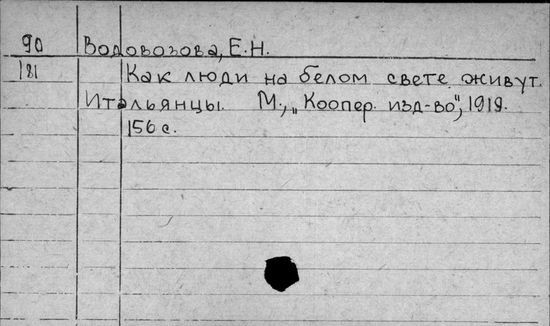 90 Водовозова, Е.Н.
181 Как люди на белом свете живут.
Итальянцы. М., „Коопер. изд-во", 1919.
156 с.